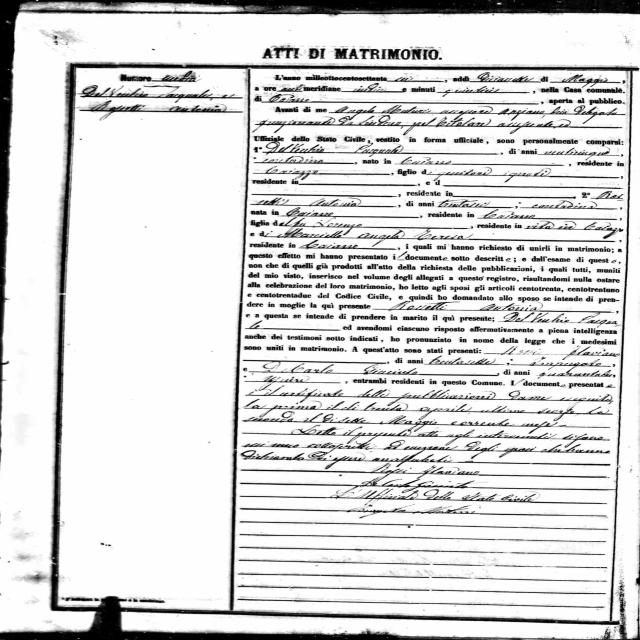 ATTI DI MATRIMONIO.
Numero
Del Vecchio Pasquale, e
Rossetti Antonia
L'anno milleottocentoottanta, addì Diciassette di Maggio,
a ore meridiane e minuti, nella Casa comunale.
di Caiazzo, aperta al pubblico.
Avanti di me Angelo
Uffiziale dello Stato Civile, vestito in forma uffiziale, sono personalmente comparsi:
1° Del Vecchio Pasquale, di anni venticinque,
contadino, nato in Caiazzo, residente in
Caiazzo, figlio di genitori ignoti,
residente in, e di
, residente in 2° Ros
setti Antonia, di anni, contadina
nata in Caiazzo, residente in Caiazzo
figlia Lorenzo, residente in vita in Caiazzo
e di Angela Teresa,
residente in Caiazzo, i quali mi hanno richiesto di unirli in matrimonio; a
questo effetto mi hanno presentato i documenti sotto descritti; e dall'esame di questi,
non che di quelli già prodotti all'atto della richiesta delle pubblicazioni, i quali tutti, muniti
del mio visto, inserisco nel volume degli allegati a questo registro, risultandomi nulla ostare
alla celebrazione del loro matrimonio, ho letto agli sposi gli articoli centotrenta, centotrentuno
e centotrentadue del Codice Civile, e quindi ho domandato allo sposo se intende di pren-
dere in moglie la quì presente Rossetti Antonia
e a questa se intende di prendere in marito il quì presente; Del Vecchio Pasqua
le ed avendomi ciascuno risposto affermativamente a piena intelligenza
anche dei testimoni sotto indicati, ho pronunziato in nome della legge che i medesimi
sono uniti in matrimonio. A quest'atto sono stati presenti: Rossi Flaviano
, di anni trentasette, impiegato
e De Carlo Giacinto, di anni quarantatre
, entrambi residenti in questo Comune. I documenti presentati
è il certificato delle pubblicazioni da me eseguite
la prima il di trenta aprile ultimo scorso la
seconda il di sette Maggio corrente mese
Letto il presente atto agli intervenuti
sottoscritto ad eccezione degli sposi che hanno
dichiarato di essere analfabeti
Rossi Flaviano
De Carlo Giacinto
L'Uffiziale dello Stato Civile
Angelo